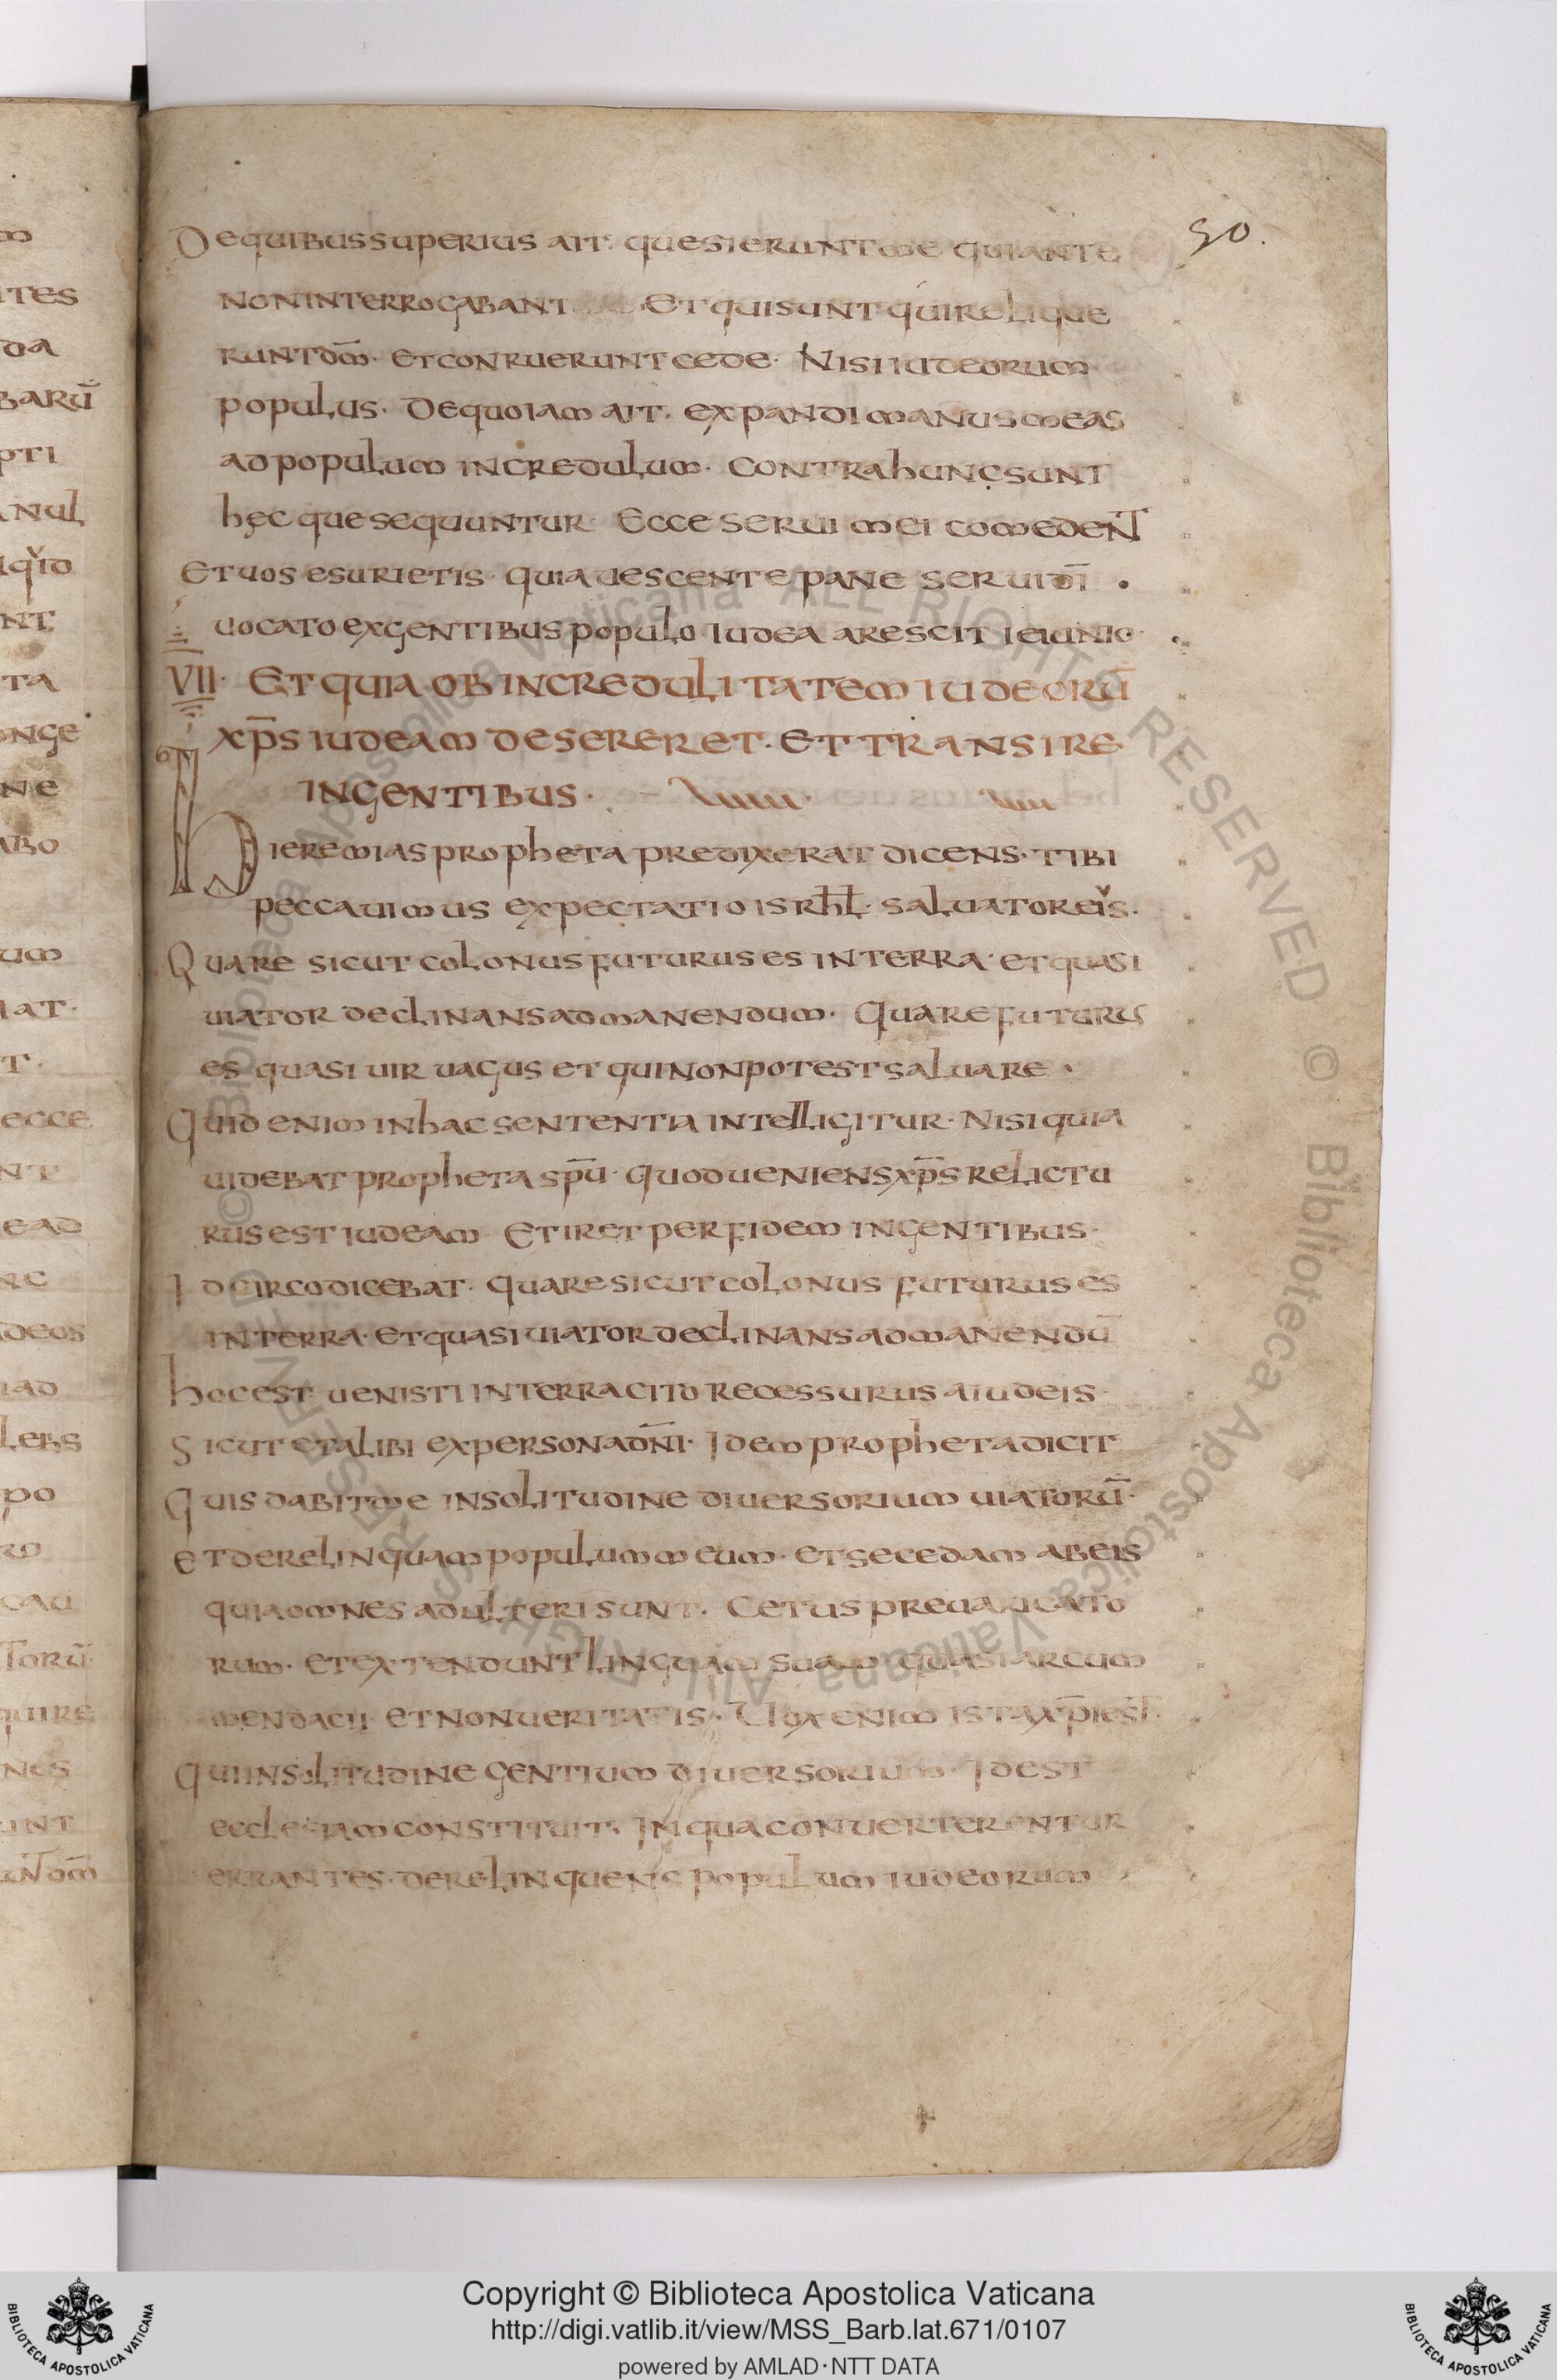 50.
De quibus superius ait. quesierunt me qui ante
non interrogabant. Et qui sunt qui relique
runt dm̄. et conruerunt cede. Nisi iudeorum
populus. De quo iam ait. expandi manus meas
ad populum incredulum. contra hunc sunt
hęc que sequuntur. Ecce serui mei comedenT
et uos esurietis. quia uescente pane serui dī.
uocato ex gentibus populo iudea arescit ieiunio.
VII. Et quia ob incredulitatem iudeorū
xp̄s iudeam desereret. et transire
in gentibus.
Hieremias propheta predixerat dicens. tibi
peccauimus expectatio isrhł. saluator eiˇs.
Quare sicut colonus futurus es in terra. et quasi
uiator declinans ad manendum. Quare futurus
es quasi uir uagus et qui non potest saluare.
Quid enim in hac sententia intelligitur. Nisi quia
uidebat propheta sp̄u. quod ueniens xp̄s relictu
rus est iudeam. Et iret per fidem in gentibus.
Idcirco dicebat. quare sicut colonus futurus es
in terra. et quasi uiator declinans ad manendū
hoc est. uenisti in terra cito recessurus a iudeis.
Sicut et alibi ex persona dn̄i. Idem propheta dicit
Quis dabit me in solitudine diuersorium uiatorū.
et derelinquam populum meum. et secedam ab eis
quia omnes adulteri sunt. Cetus preuaricato
rum. et extendunt linguam suam quasi arcum
mendacii. et non ueritatis. Uox enim ista xp̄i est.
Qui in solitudine gentium diuersorium. Id est
ecclesiam constituit. In qua conuerterentur
errantes. derelinquens populum iudeorum
m
ites
da
barū
pti
nul
nt
ta
ne
abo
um
iat.
t.
ecce
nt
ead
nc
deos
iad
lebs
po
ro
cau
torū
quire
nes
unt
unt dm̄
© Biblioteca Apostolica Vaticana ALL RIGHTS RESERVED © Biblioteca Apostolica Vaticana ALL RIGHTS RESERVED
Copyright © Biblioteca Apostolica Vaticana
http://digi.vatlib.it/view/MSS_Barb.lat.671/0107
powered by AMLAD·NTT DATA
BIBLIOTECA APOSTOLICA VATICANA
BIBLIOTECA APOSTOLICA VATICANA